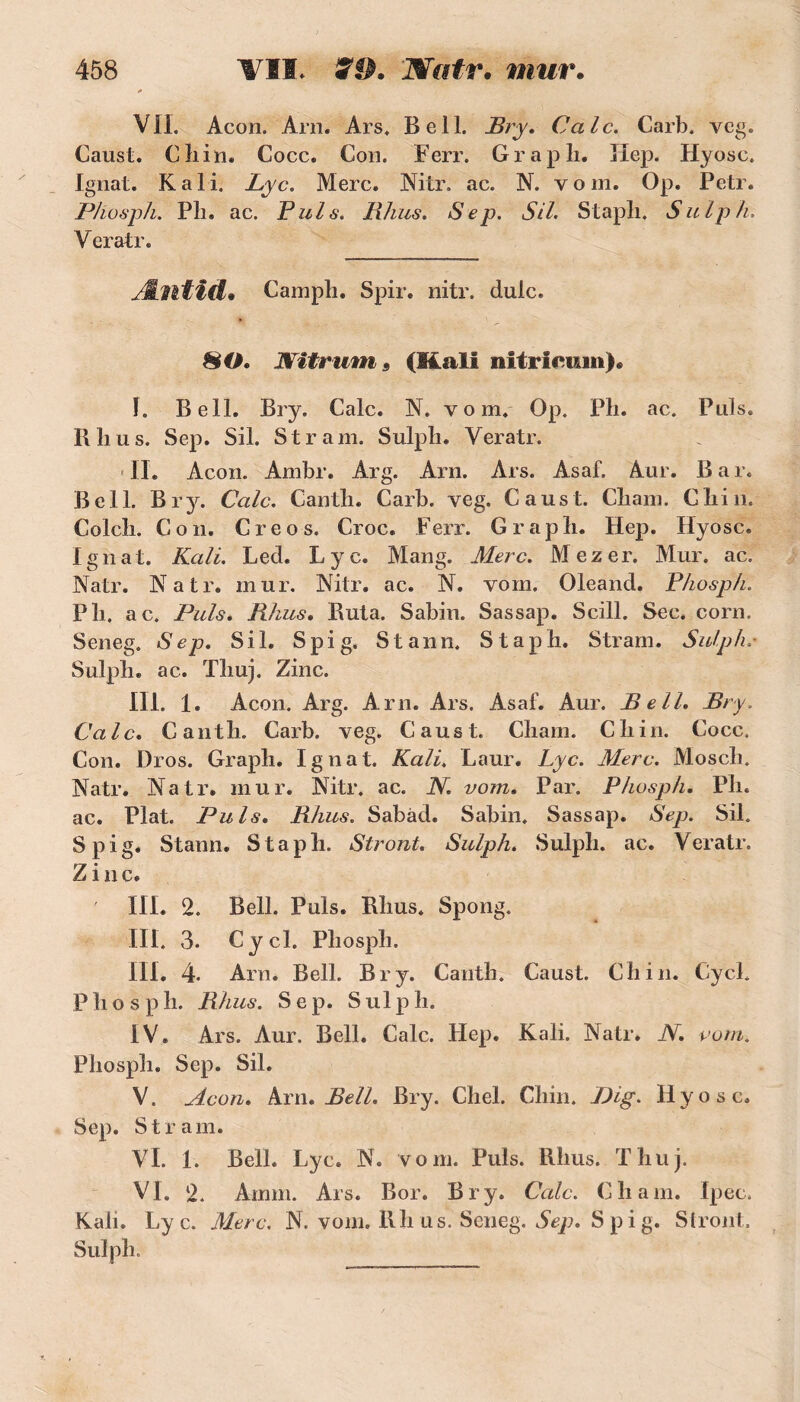 458 VII. 79. Natr. mur.
VII. Acon. Arn. Ars. Bell. Bry. Calc. Carb. veg.
Caust. Chin. Cocc. Con. Ferr. Graph. Hep. Hyosc.
Ignat. Kali. Lyc. Merc. Nitr. ac. N. vom. Op. Petr.
Phosph. Ph. ac. Puls. Rhus. Sep. Sil. Staph. Sulph.
Veratr.
Antid. Camph. Spir. nitr. dulc.
80. Nitrum, (Kali nitricum).
I. Bell. Bry. Calc. N. vom. Op. Ph. ac. Puls.
Rhus. Sep. Sil. Stram. Sulph. Veratr.
II. Acon. Ambr. Arg. Arn. Ars. Asaf. Aur. Bar.
Bell. Bry. Calc. Canth. Carb. veg. Caust. Cham. Chin.
Colch. Con. Creos. Croc. Ferr. Graph. Hep. Hyosc.
Ignat. Kali. Led. Lyc. Mang. Merc. Mezer. Mur. ac.
Natr. Natr. mur. Nitr. ac. N. vom. Oleand. Phosph.
Ph. ac. Puls. Rhus. Ruta. Sabin. Sassap. Scill. Sec. corn.
Seneg. Sep. Sil. Spig. Stann. Staph. Stram. Sulph.
Sulph. ac. Thuj. Zinc.
III. 1. Acon. Arg. Arn. Ars. Asaf. Aur. Bell. Bry.
Calc. Canth. Carb. veg. Caust. Cham. Chin. Cocc.
Con. Dros. Graph. Ignat. Kali. Laur. Lyc. Merc. Mosch.
Natr. Natr. mur. Nitr. ac. N. vom. Par. Phosph. Ph.
ac. Plat. Puls. Rhus. Sabad. Sabin. Sassap. Sep. Sil.
Spig. Stann. Staph. Stront. Sulph. Sulph. ac. Veratr.
Zinc.
III. 2. Bell. Puls. Rhus. Spong.
III. 3. Cycl. Phosph.
III. 4. Arn. Bell. Bry. Canth. Caust. Chin. Cycl.
Phosph. Rhus. Sep. Sulph.
IV. Ars. Aur. Bell. Calc. Hep. Kali. Natr. N. vom.
Phosph. Sep. Sil.
V. Acon. Arn. Bell. Bry. Chel. Chin. Dig. Hyosc.
Sep. Stram.
VI. 1. Bell. Lyc. N. vom. Puls. Rhus. Thuj.
VI. 2. Amm. Ars. Bor. Bry. Calc. Cham. Ipec.
Kali. Lyc. Merc. N. vom. Rhus. Seneg. Sep. Spig. Stront.
Sulph.